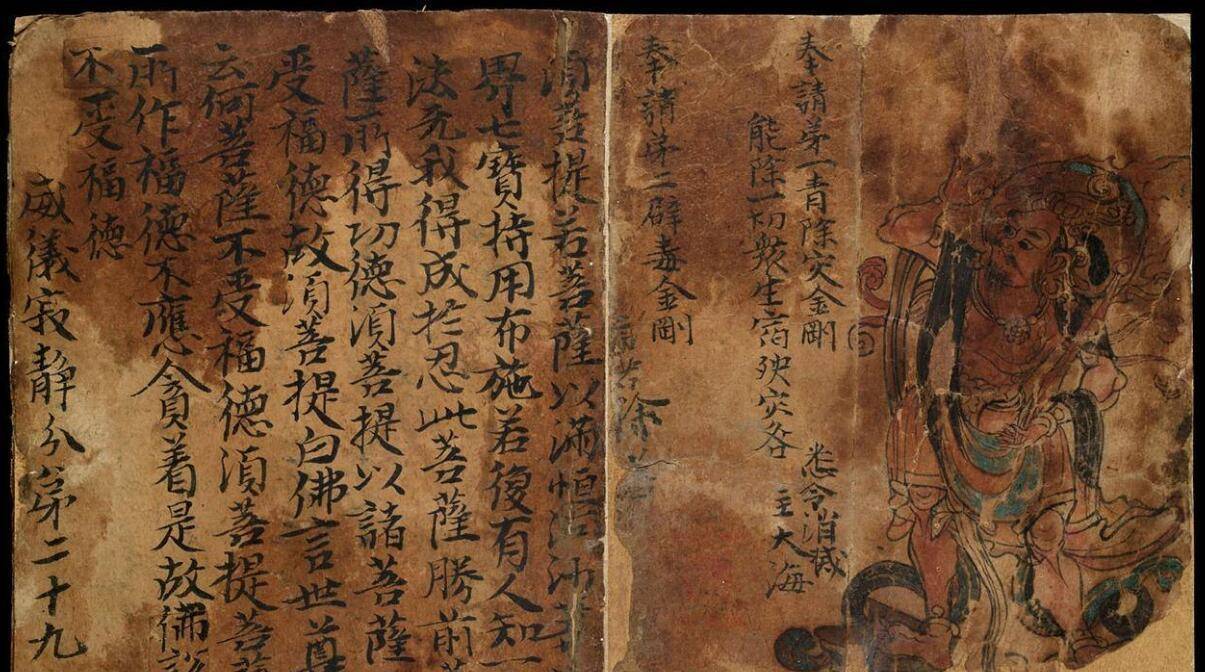 奉請第一青除灾金剛
能除一切衆生宿殃灾咎
悉令消滅
主大海
奉請第二辟毒金剛
須菩提若菩薩以滿恒河沙等
界七寶持用布施若復有人知一
法无我得成於忍此菩薩勝前
薩所得功德須菩提以諸菩薩
受福德故須菩提白佛言世尊
云何菩薩不受福德須菩提菩薩
所作福德不應貪着是故佛說
不受福德
威儀寂静分第二十九